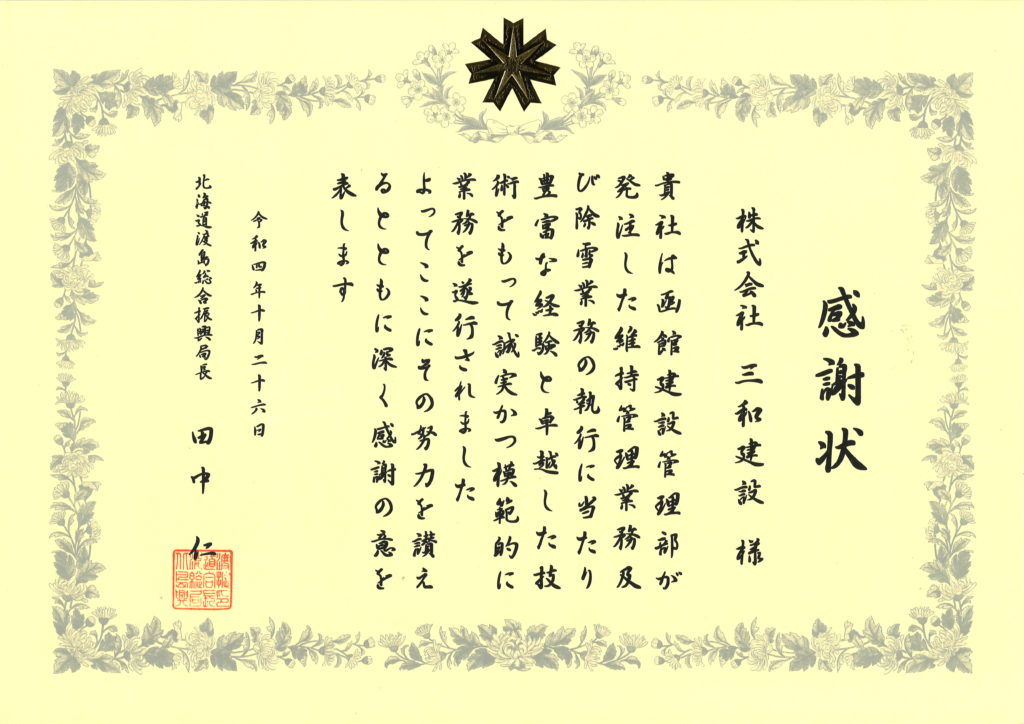 感謝状
株式会社 三和建設 様
貴社は函館建設管理部が
発注した維持管理業務及
び除雪業務の執行に当たり
豊富な経験と卓越した技
術をもって誠実かつ模範的に
業務を遂行されました
よってここにその努力を讃え
るとともに深く感謝の意を
表します
令和四年十月二十六日
北海道渡島総合振興局長 田中 仁